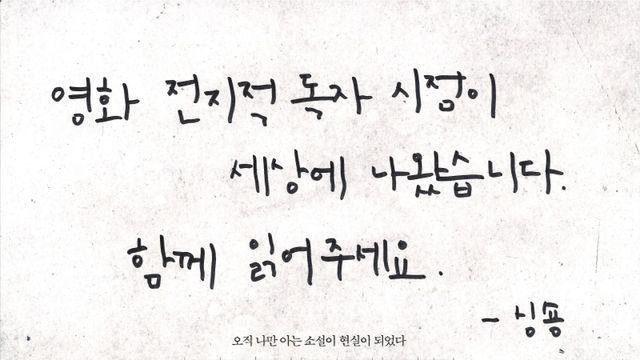 영화 전지적 독자 시점이
세상에 나왔습니다.
함께 읽어주세요.
- 싱숑
오직 나만 아는 소설이 현실이 되었다